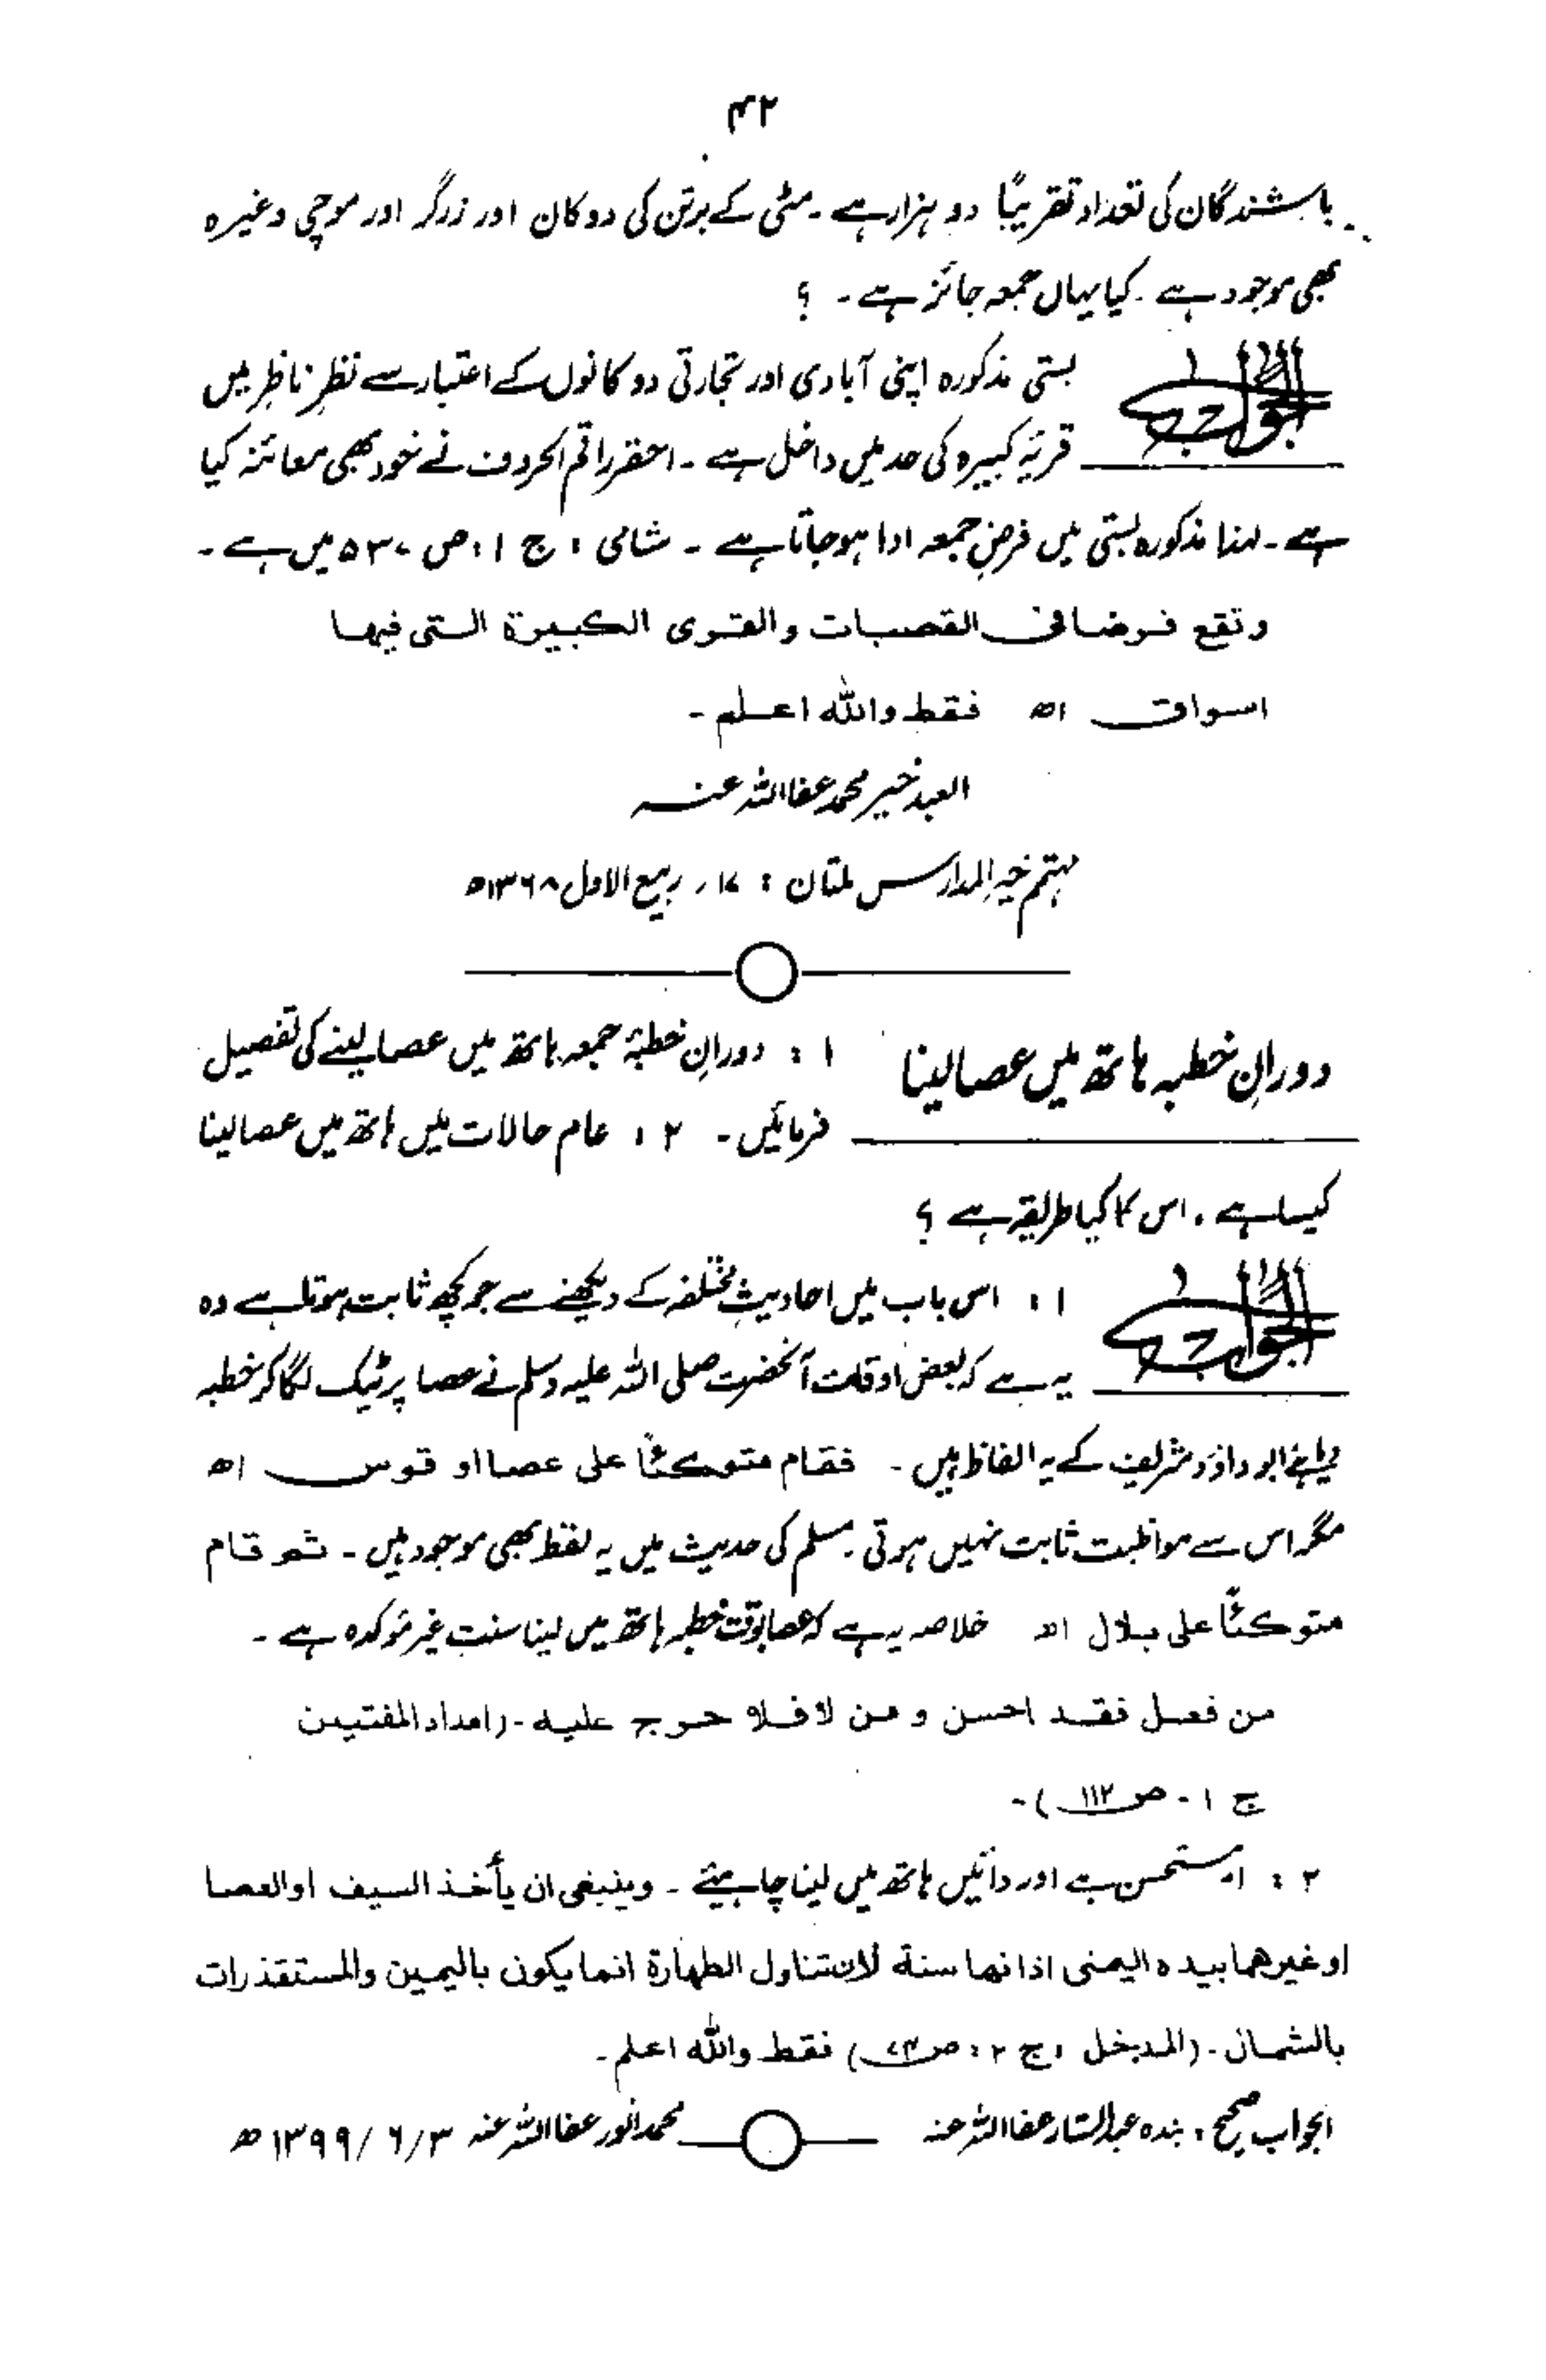 ۴۲
باشندگان کی تعداد تقریبًا دو ہزار ہے ۔ مٹی کے برتن کی دوکان اور زرگر اور موچی وغیرہ
بھی موجود ہے ۔ کیا یہاں جمعہ جائز ہے ۔ ؟
الجواب بستی مذکورہ اپنی آبادی اور تجارتی دوکانوں کے اعتبار سے نظرِ ناظِر میں
قریۂ کبیرہ کی حد میں داخل ہے ۔ احقر راقم الحروف نے خود بھی معائنہ کیا
ہے ۔ لہٰذا مذکورہ بستی میں فرضِ جمعہ ادا ہو جاتا ہے ۔ شامی ؛ ج ۱ ؛ ص ۵۳۷ میں ہے ۔
وتقع فرضا فی القصبات والقری الکبیرة التی فیہا
اسواق اھ فقط واللہ اعلم ۔
العبد خیر محمد عفا اللہ عنہ
مہتمم خیر المدارس ملتان ؛ ۱۷ ر ربیع الاول ۱۳۶۸ھ
دورانِ خطبہ ہاتھ میں عصا لینا ۱ ؛ دورانِ خطبۂ جمعہ ہاتھ میں عصا لینے کی تفصیل
فرمائیں ۔ ۲ ؛ عام حالات میں ہاتھ میں عصا لینا
کیسا ہے ، اس کا کیا طریقہ ہے ؟
الجواب ۱ ؛ اس باب میں احادیثِ مختلفہ کے دیکھنے سے جو کچھ ثابت ہوتا ہے وہ
یہ ہے کہ بعض اوقات آنحضرت صلی اللہ علیہ وسلم نے عصا پر ٹیک لگا کر خطبہ
دیا ہے ابوداؤد شریف کے یہ الفاظ ہیں ۔ فقام متوکئًا علی عصا او قوس اھ
مگر اس سے مواظبت ثابت نہیں ہوتی ۔ مسلم کی حدیث میں یہ لفظ بھی موجود ہیں ۔ ثم قام
متوکئًا علی بلال اھ خلاصہ یہ ہے کہ عصا بوقت خطبہ ہاتھ میں لینا سنتِ غیر مؤکدہ ہے ۔
من فعل فقد احسن و من لا فلا حرج علیہ ۔ (امداد المفتیین
ج ۱ ۔ ص ۱۱۲) ۔
۲ ؛ مستحسن ہے اور دائیں ہاتھ میں لینا چاہیئے ۔ وینبغی ان یأخذ السیف او العصا
او غیرھما بیدہ الیمنی اذ انہا سنة لان تناول الطہارة انما یکون بالیمین والمستقذرات
بالشمال ۔ (المدخل ؛ ج ۲ ؛ ص) فقط واللہ اعلم ۔
الجواب صحیح ، بندہ عبد الستار عفا اللہ عنہ محمد انور عفا اللہ عنہ ۳/۶/۱۳۹۹ھ